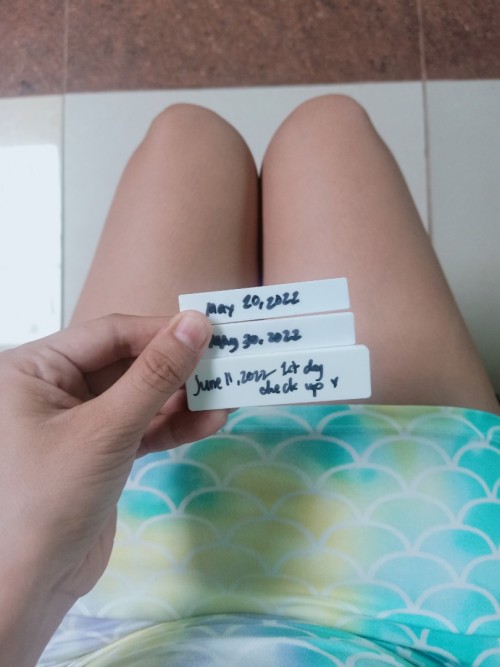 May 20, 2022
May 30, 2022
June 11, 2022 1st day
check up